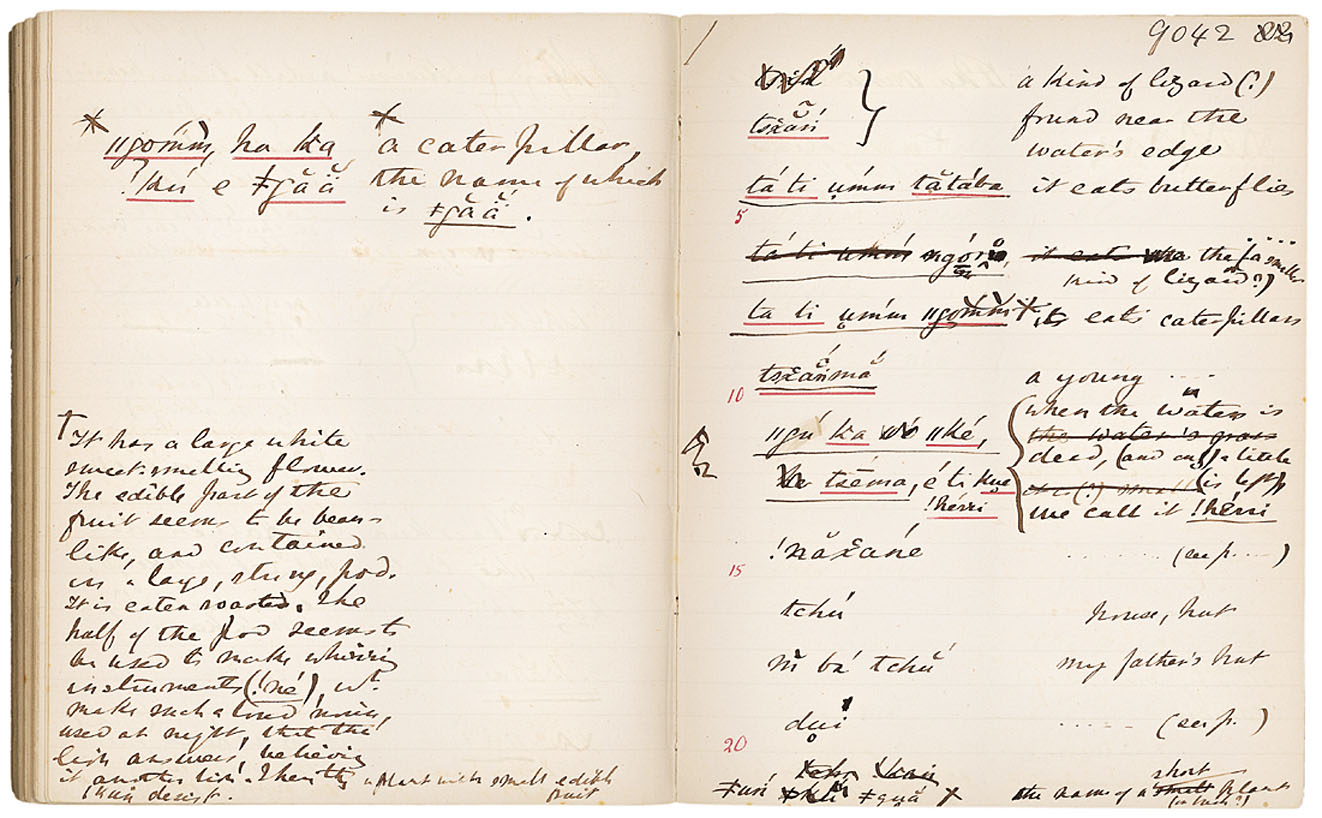 * ǁgómm̀, ha ka
!kú e ǂgắắ
* a caterpillar,
the name of which
is ǂgắắ.
† It has a large white
sweet-smelling flower.
The edible part of the
fruit seems to be bean-
like, and contained
in a large, strong, pod.
It is eaten roasted. The
half of the pod seems to
be used to make whirring
instruments (!né), wh.
make such a loud noise,
used at night, that the
lion answers, believing
it another lion. Then they
desist.
a plant with small edible
fruit
9042
tsž̌ań
a kind of lizard (?)
found near the
water's edge
tá ti ụ́mm tătába it eats butterflies
5
tá ti umḿ it eats the (a smaller
kind of lizard?)
ta ti ụ́mm ǁgomm̀ † it eats caterpillars
tsž̌ań́mă a young ....
10
ǁgú ka ǁké,
tséma, é ti kue
!hérri
when the water is
the water's
dead, (and only a little
(is left)
we call it !hérri
!nă̌žané ........ (see p. ....)
15
tchú house, hut
m̀ bá tchú my father's hut
dụí ...... (see p. )
20
ǂgụă † the name of a short plant
(or bush?)